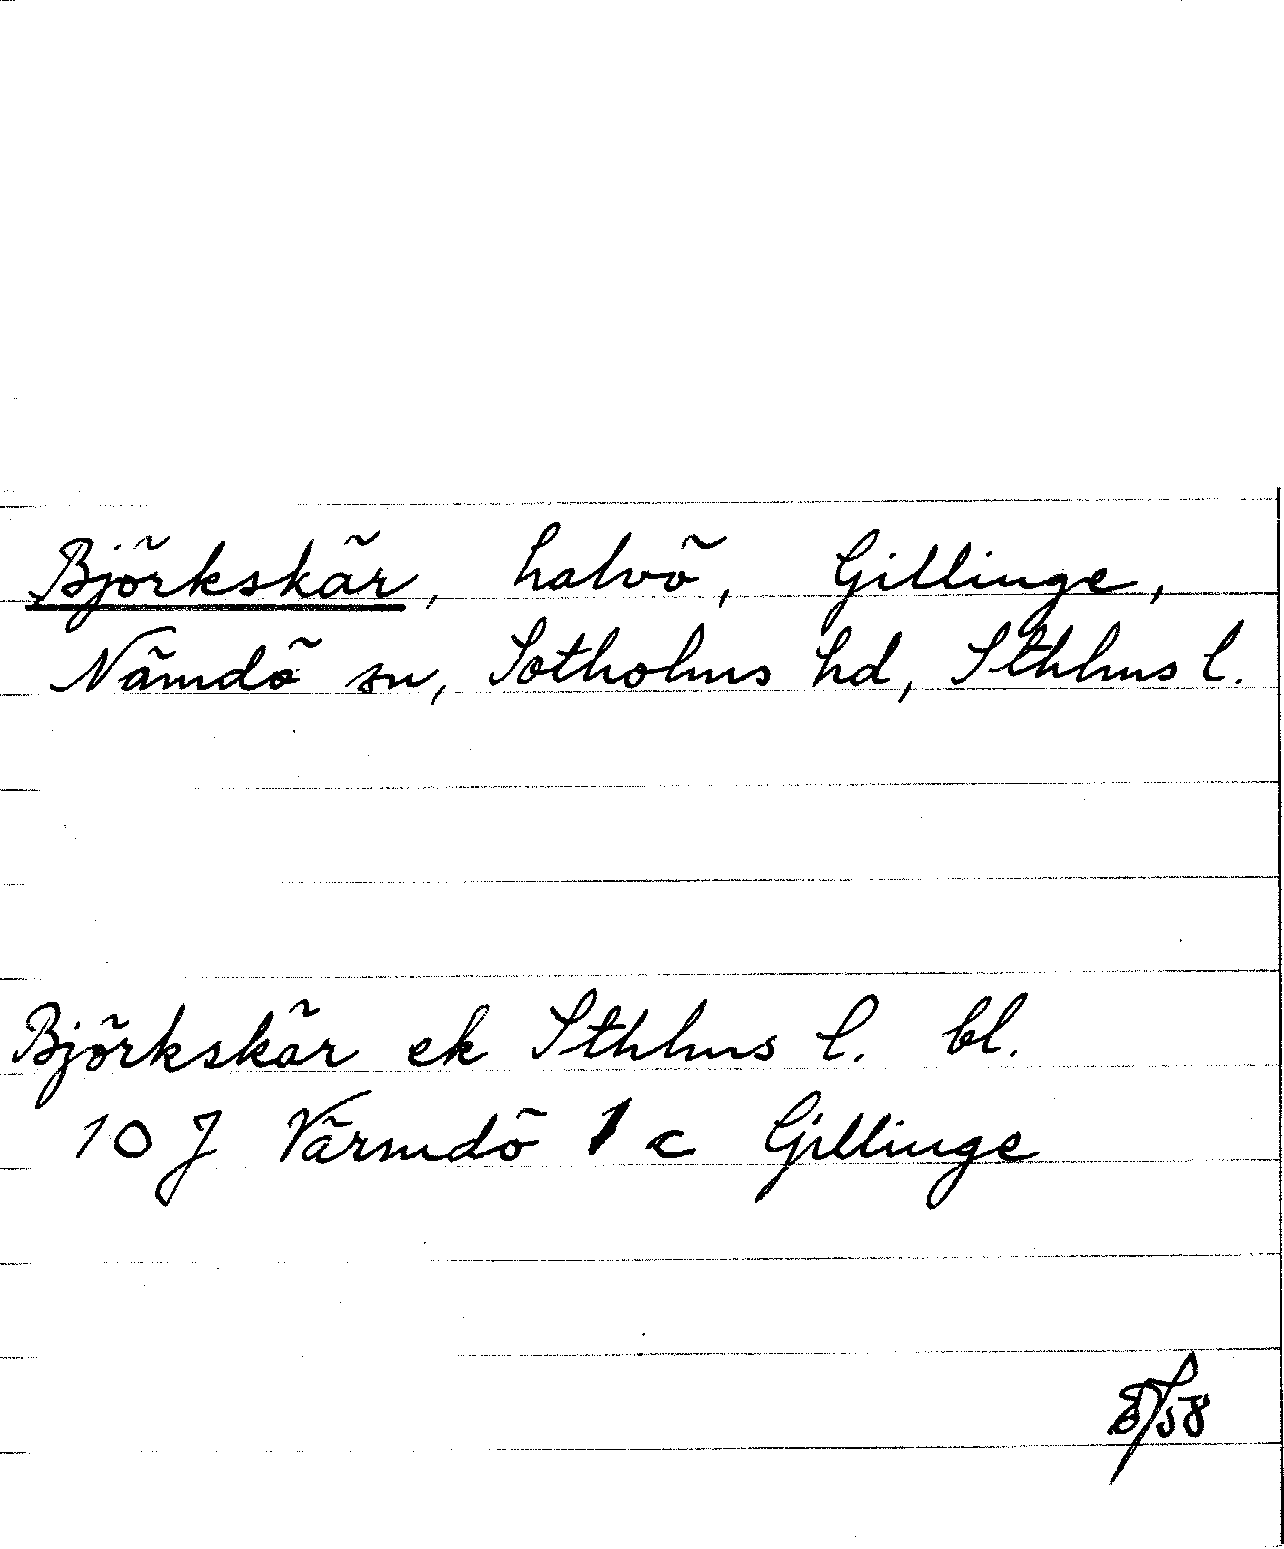 Björkskär, halvö, Gillinge,
Nämdö sn, Sotholms hd, Sthlms l.
Björkskär ek Sthlms l. bl.
10 J Värmdö 1 c Gillinge
/58